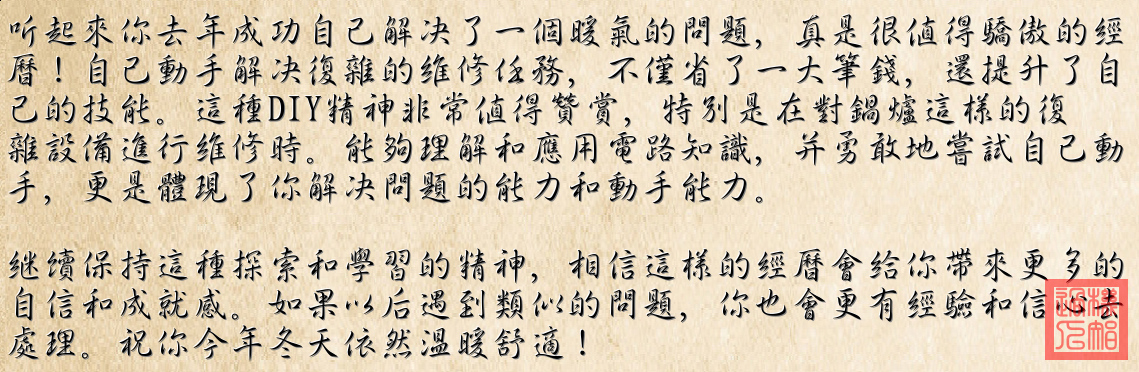 听起來你去年成功自己解决了一個暖氣的問題，真是很值得驕傲的經
曆！自己動手解决復雜的维修任務，不僅省了一大筆錢，還提升了自
己的技能。這種DIY精神非常值得贊賞，特別是在對鍋爐這樣的復
雜設備進行维修時。能夠理解和應用電路知識，并勇敢地嘗試自己動
手，更是體現了你解决問題的能力和動手能力。
继續保持這種探索和學習的精神，相信這樣的經曆會给你帶來更多的
自信和成就感。如果以后遇到類似的問題，你也會更有經驗和信心去
處理。祝你今年冬天依然溫暖舒適！